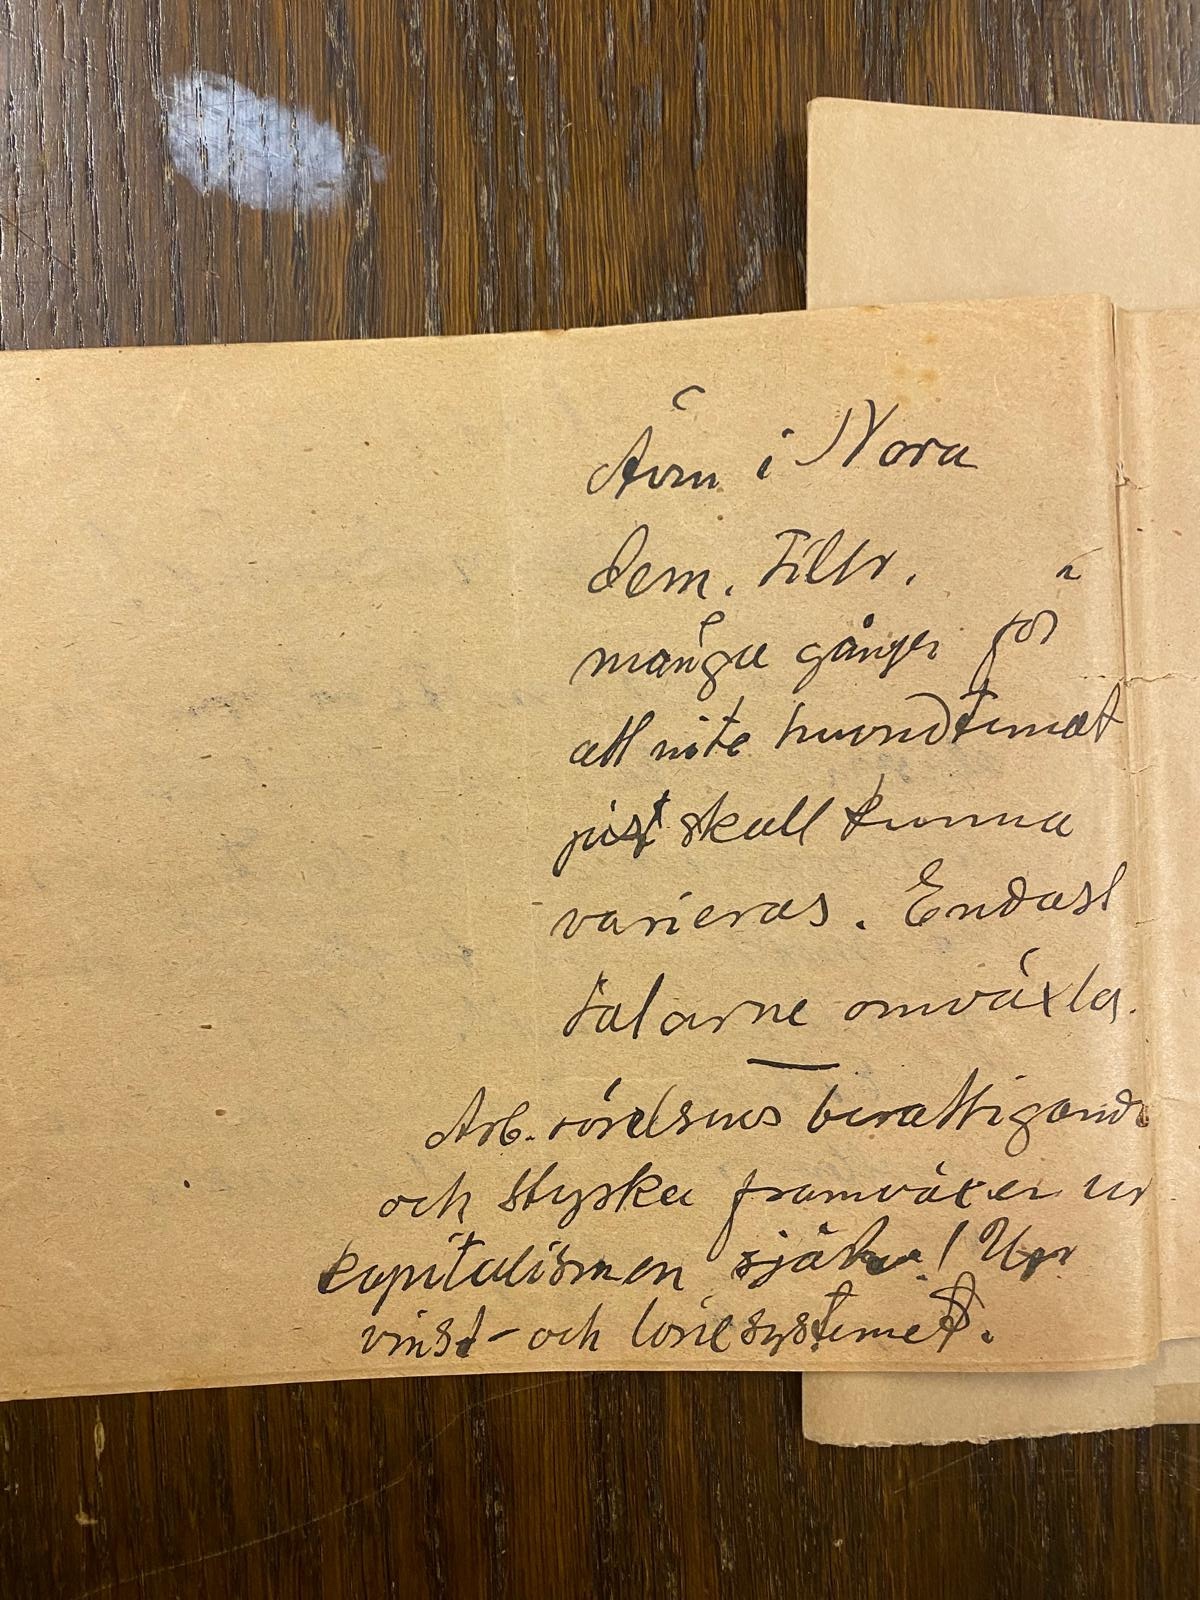 Även i Nora
dem. Tillr.
många gånger för
att inte huvudtemat
just skall kunna
varieras. Endast
talarne omväxla.
Arb. rörelsens berättigande
och styrka framväxer ur
kapitalismen själva! Ur
vinst- och lönesystemet.